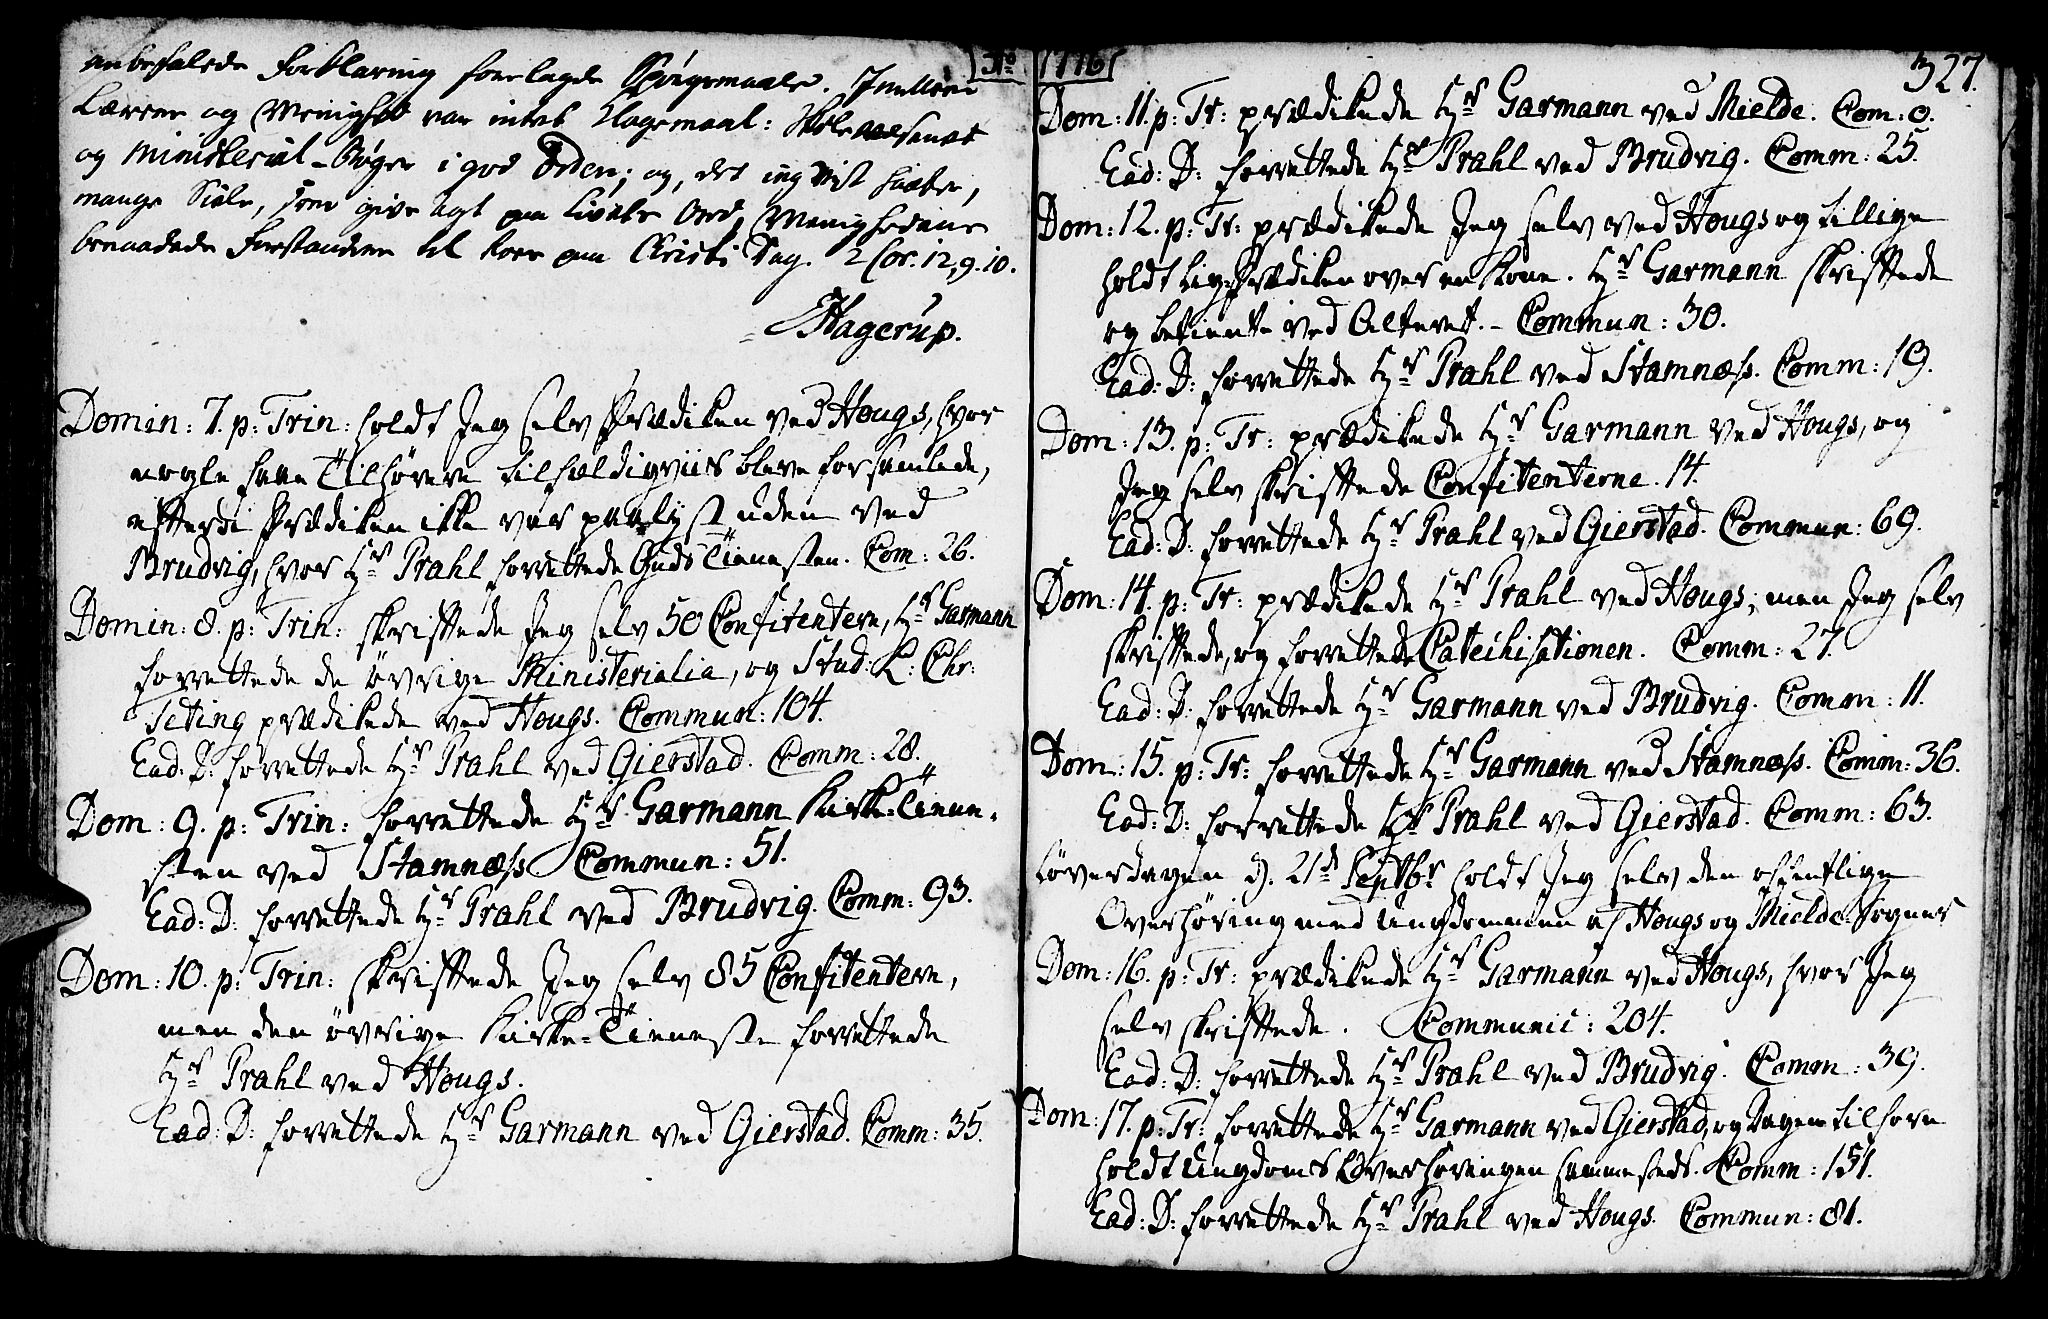 anbefalede Forklaring forelagde Spörgsmaale. Imellem
Lærere og Menighed var intet Klagemaal: Skolevæsenet
og Ministerial-Böger i god Orden; og, det ieg vist haaber,
mange Siæle, som give agt paa Livets Ord, Menighedens
benaadede Forstandere til Roes paa Christi Dag. 2 Cor. 12, 9. 10.
EHagerup.
Domin: 7. p: Trin: holdt Jeg selv Prædiken ved Hougs, hvor
nogle faae Tilhörere tilfældigviis bleve forsamlede,
efterdi Prædiken ikke var paalyst uden ved
Brudvig, hvor Hr Prahl forrettede Guds Tienesten. Com: 26.
Domin: 8. p: Trin: skriftede Jeg selv 50 Confitentere, Hr Garmann
forrettede de övrige Ministerialia, og Stud: L: Chr:
Teting prædikede ved Hougs. Commun: 104.
Ead: D: forrettede Hr Prahl ved Gierstad. Comm: 28.
Dom: 9. p: Trin: forrettede Hr Garmann Kirke-Tiene-
sten ved Stamnæss Commun: 51.
Ead: D: forrettede Hr Prahl ved Brudvig. Comm: 93.
Dom: 10. p: Trin: skriftede Jeg selv 85 Confitentere,
men den övrige Kirke-Tieneste forrettede
Hr Prahl ved Hougs.
Ead: D: forrettede Hr Garmann ved Gierstad. Comm: 35.
1776
327.
Dom: 11. p: Tr: prædikede Hr Garmann ved Mielde. Com: 0.
Ead: D: forrettede Hr Prahl ved Brudvig. Comm: 25.
Dom: 12. p: Tr: prædikede Jeg selv ved Hougs og tillige
holdt Lig-Prædiken over en Kone. Hr Garmann skriftede
og betiente ved Alteret. - Commun: 30.
Ead: D: forrettede Hr Prahl ved Stamnæss. Comm: 19.
Dom: 13. p: Tr: prædikede Hr Garmann ved Hougs, og
Jeg selv skriftede Confitenterne. 14.
Ead: D: forrettede Hr Prahl ved Gierstad. Commun: 69.
Dom: 14. p: Tr: prædikede Hr Prahl ved Hougs; men Jeg selv
skriftede, og forrettede Catechisationen. Comm: 27.
Ead: D: forrettede Hr Garmann ved Brudvig. Comm: 11.
Dom: 15. p: Tr: forrettede Hr Garmann ved Stamnæss. Comm: 36.
Ead: D: forrettede Hr Prahl ved Gierstad. Comm: 63.
Löverdagen d. 21de Septbr holdt Jeg selv den offentlige
Overhöring med Ungdommen af Hougs og Mielde Sogner
Dom: 16. p: Tr: prædikede Hr Garmann ved Hougs, hvor Jeg
selv skriftede. Communic: 204.
Ead: D: forrettede Hr Prahl ved Brudvig. Comm: 39.
Dom: 17. p: Tr: forrettede Hr Garmann ved Gierstad, og Dagen tilforn
holdt Ungdoms Overhöringen sammesteds. Comm: 151.
Ead: D: forrettede Hr Prahl ved Hougs. Commun: 81.